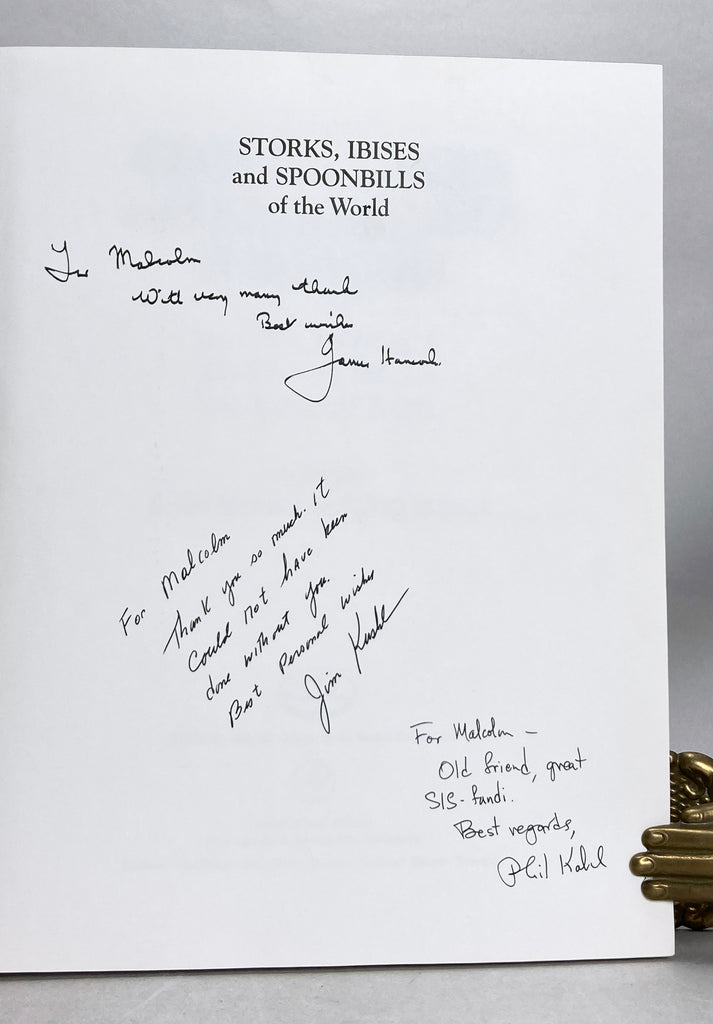 STORKS, IBISES
and SPOONBILLS
of the World
For Malcolm
With very many thanks
Best wishes
James Hancock.
For Malcolm
Thank you so much. It
could not have been
done without you.
Best Personal wishes
Jim Kushl
For Malcolm –
Old friend, great
SIS-fundi.
Best regards,
Phil Kahl